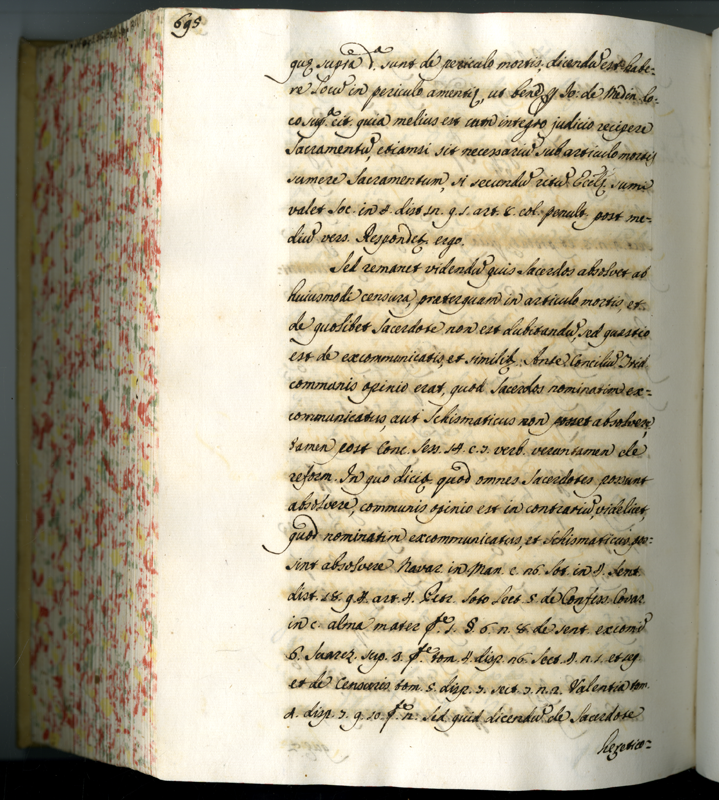 695
quę supra d.ª sunt de periculo mortis, dicendũ est habe=
re locũ in periculo amentię, ut benè Jo: de Medin. lo=
co sup. cit. quia melius est cum integro judicio recipere
Sacramentũ, etiamsi sit necessariũ sub articulo mortis
sumere Sacramentum, si secundũ ritũ Eccłę sumi
valet Soc. in 4. dist. q. 1. art. 8. col. penult. post me=
diũ vers. Respondet, ergo.
Sed remanet videndũ quis Sacerdos absolvet ab
huiusmodi censura, praterquam in articulo mortis et
de quolibet Sacerdote non est dubitandũ, sed quæstio
est de excommunicatis, et similib. Ante Conciliũ Trid.
communis opinio erat, quod Sacerdos nominatim ex=
communicatus, aut Schismaticus non posset absolvere,
tamen post Conc. Sess. 14. c. 7. verb. veruntamen de
reform. In quo dicit, quod omnes Sacerdotes possunt
absolvere, communis opinio est in contrariũ, videlicet,
quod nominatim excommunicatus, et schismaticus pos=
sint absolvere Navar. in Man. c. 26. Sot. in 4. Sent.
dist. 18. q. 4. art. 4. Petr. Soto Sect. 5. de Confess. Covar.
in c. alma mater p.ᵉ 1. §. 6. n. 8. de sent. excomũ
6. Suarez. sup. 3. p.ᵉ tom. 4. disp. 26. Sect. 4. n. 1. et seq.
et de Censuris tom. 5. disp. 7. sect. 7. n. 2. Valentia tom.
4. disp. 7. q. 10. Sed quid dicendũ de Sacerdote
hęretico=